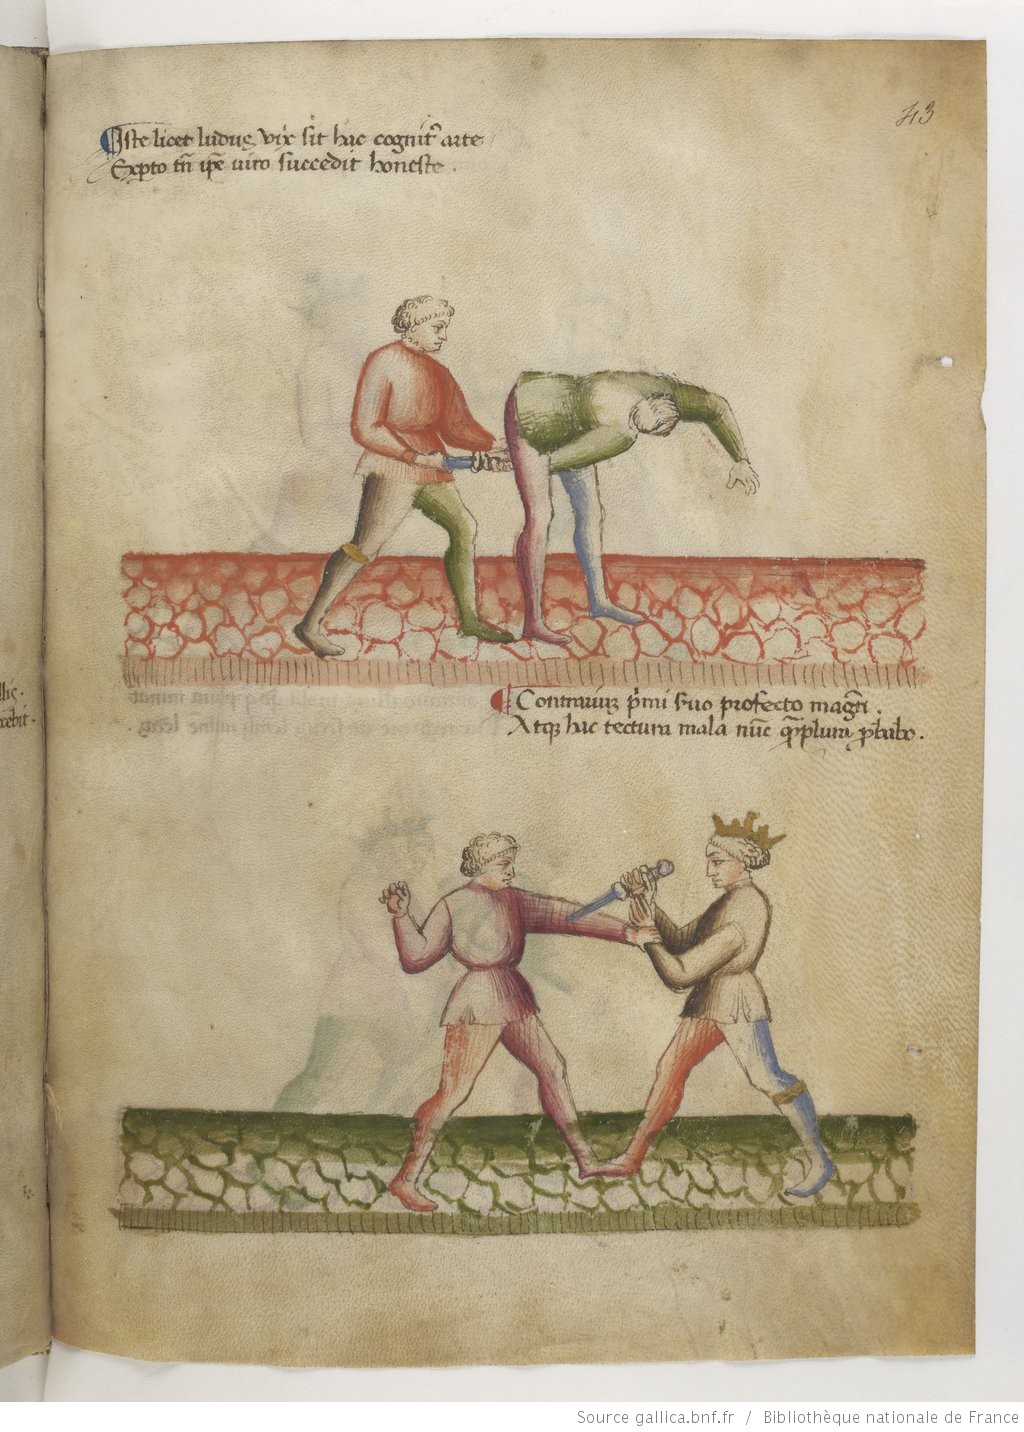 43
Iste licet ludus vix sit hac cognit᾽ arte
Exp̱to tñ ip̃e viro succedit honeste .
llis .
rebit .
Contrarium p̱mi suo profecto magr̃i .
Atqȝ hac tectura mala nũc q̃plura p̱babo .
Source gallica.bnf.fr / Bibliothèque nationale de France